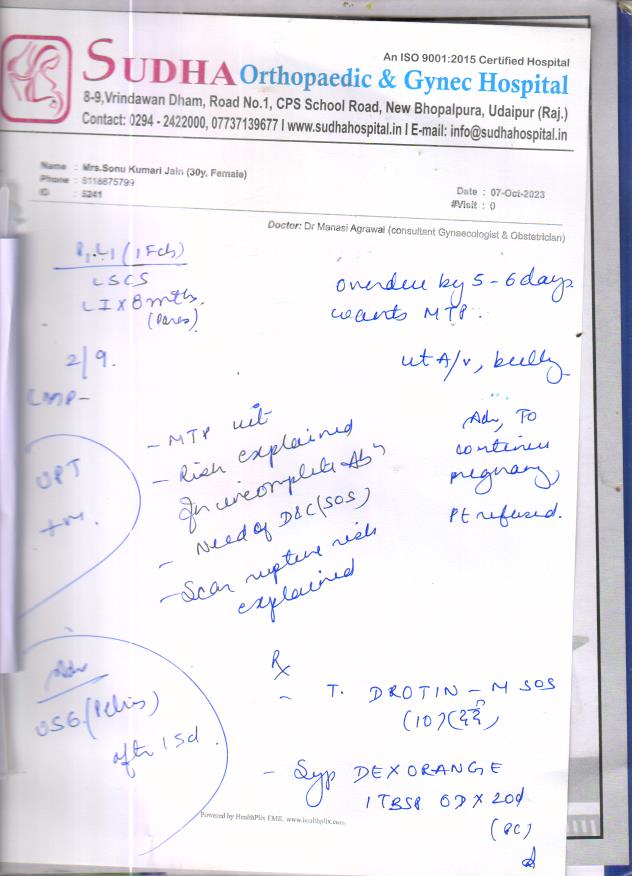 An ISO 9001:2015 Certified Hospital
SUDHA Orthopaedic & Gynec Hospital
8-9,Vrindawan Dham, Road No.1, CPS School Road, New Bhopalpura, Udaipur (Raj.)
Contact: 0294 - 2422000, 07737139677 I www.sudhahospital.in I E-mail: info@sudhahospital.in
Name : Mrs.Sonu Kumari Jain (30y, Female)
Phone : 8118875799
ID : 5241
Date : 07-Oct-2023
#Visit : 0
Doctor: Dr Manasi Agrawal (consultant Gynaecologist & Obstetrician)
P1L1 (1 Fch)
LSCS
LI X 8 mths.
overdue by 5-6 days
wants MTP.
2/9.
LMP-
ut A/v, bulky
UPT
+ve.
- MTP kit
- Risk explained
for incomplete Ab
- Need of D&C (SOS)
- Scar rupture risk
explained
Adv, To
continue
pregnancy,
Pt refused.
Adv
USG (Pelvis)
after 15d.
Rx
- T. DROTIN - M SOS
(10)
- Syp DEXORANGE
1 TBSP OD X 20d
(PC)
Powered by HealthPlix EMR. www.healthplix.com